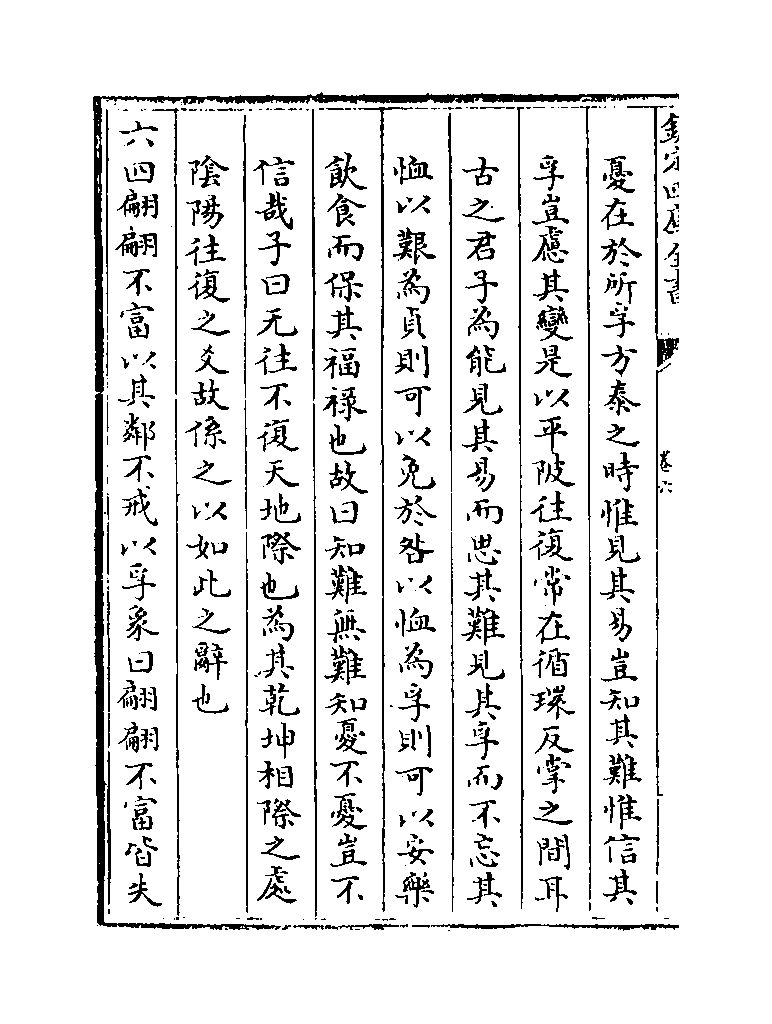 欽定四庫全書
卷六
憂在於所孚方泰之時惟見其易豈知其難惟信其
孚豈慮其變是以平陂往復常在循環反掌之間耳
古之君子為能見其易而思其難見其孚而不忘其
恤以艱為貞則可以免於咎以恤為孚則可以安樂
飲食而保其福祿也故曰知難無難知憂不憂豈不
信哉子曰无往不復天地際也為其乾坤相際之處
陰陽往復之爻故係之以如此之辭也
六四翩翩不富以其鄰不戒以孚象曰翩翩不富皆失